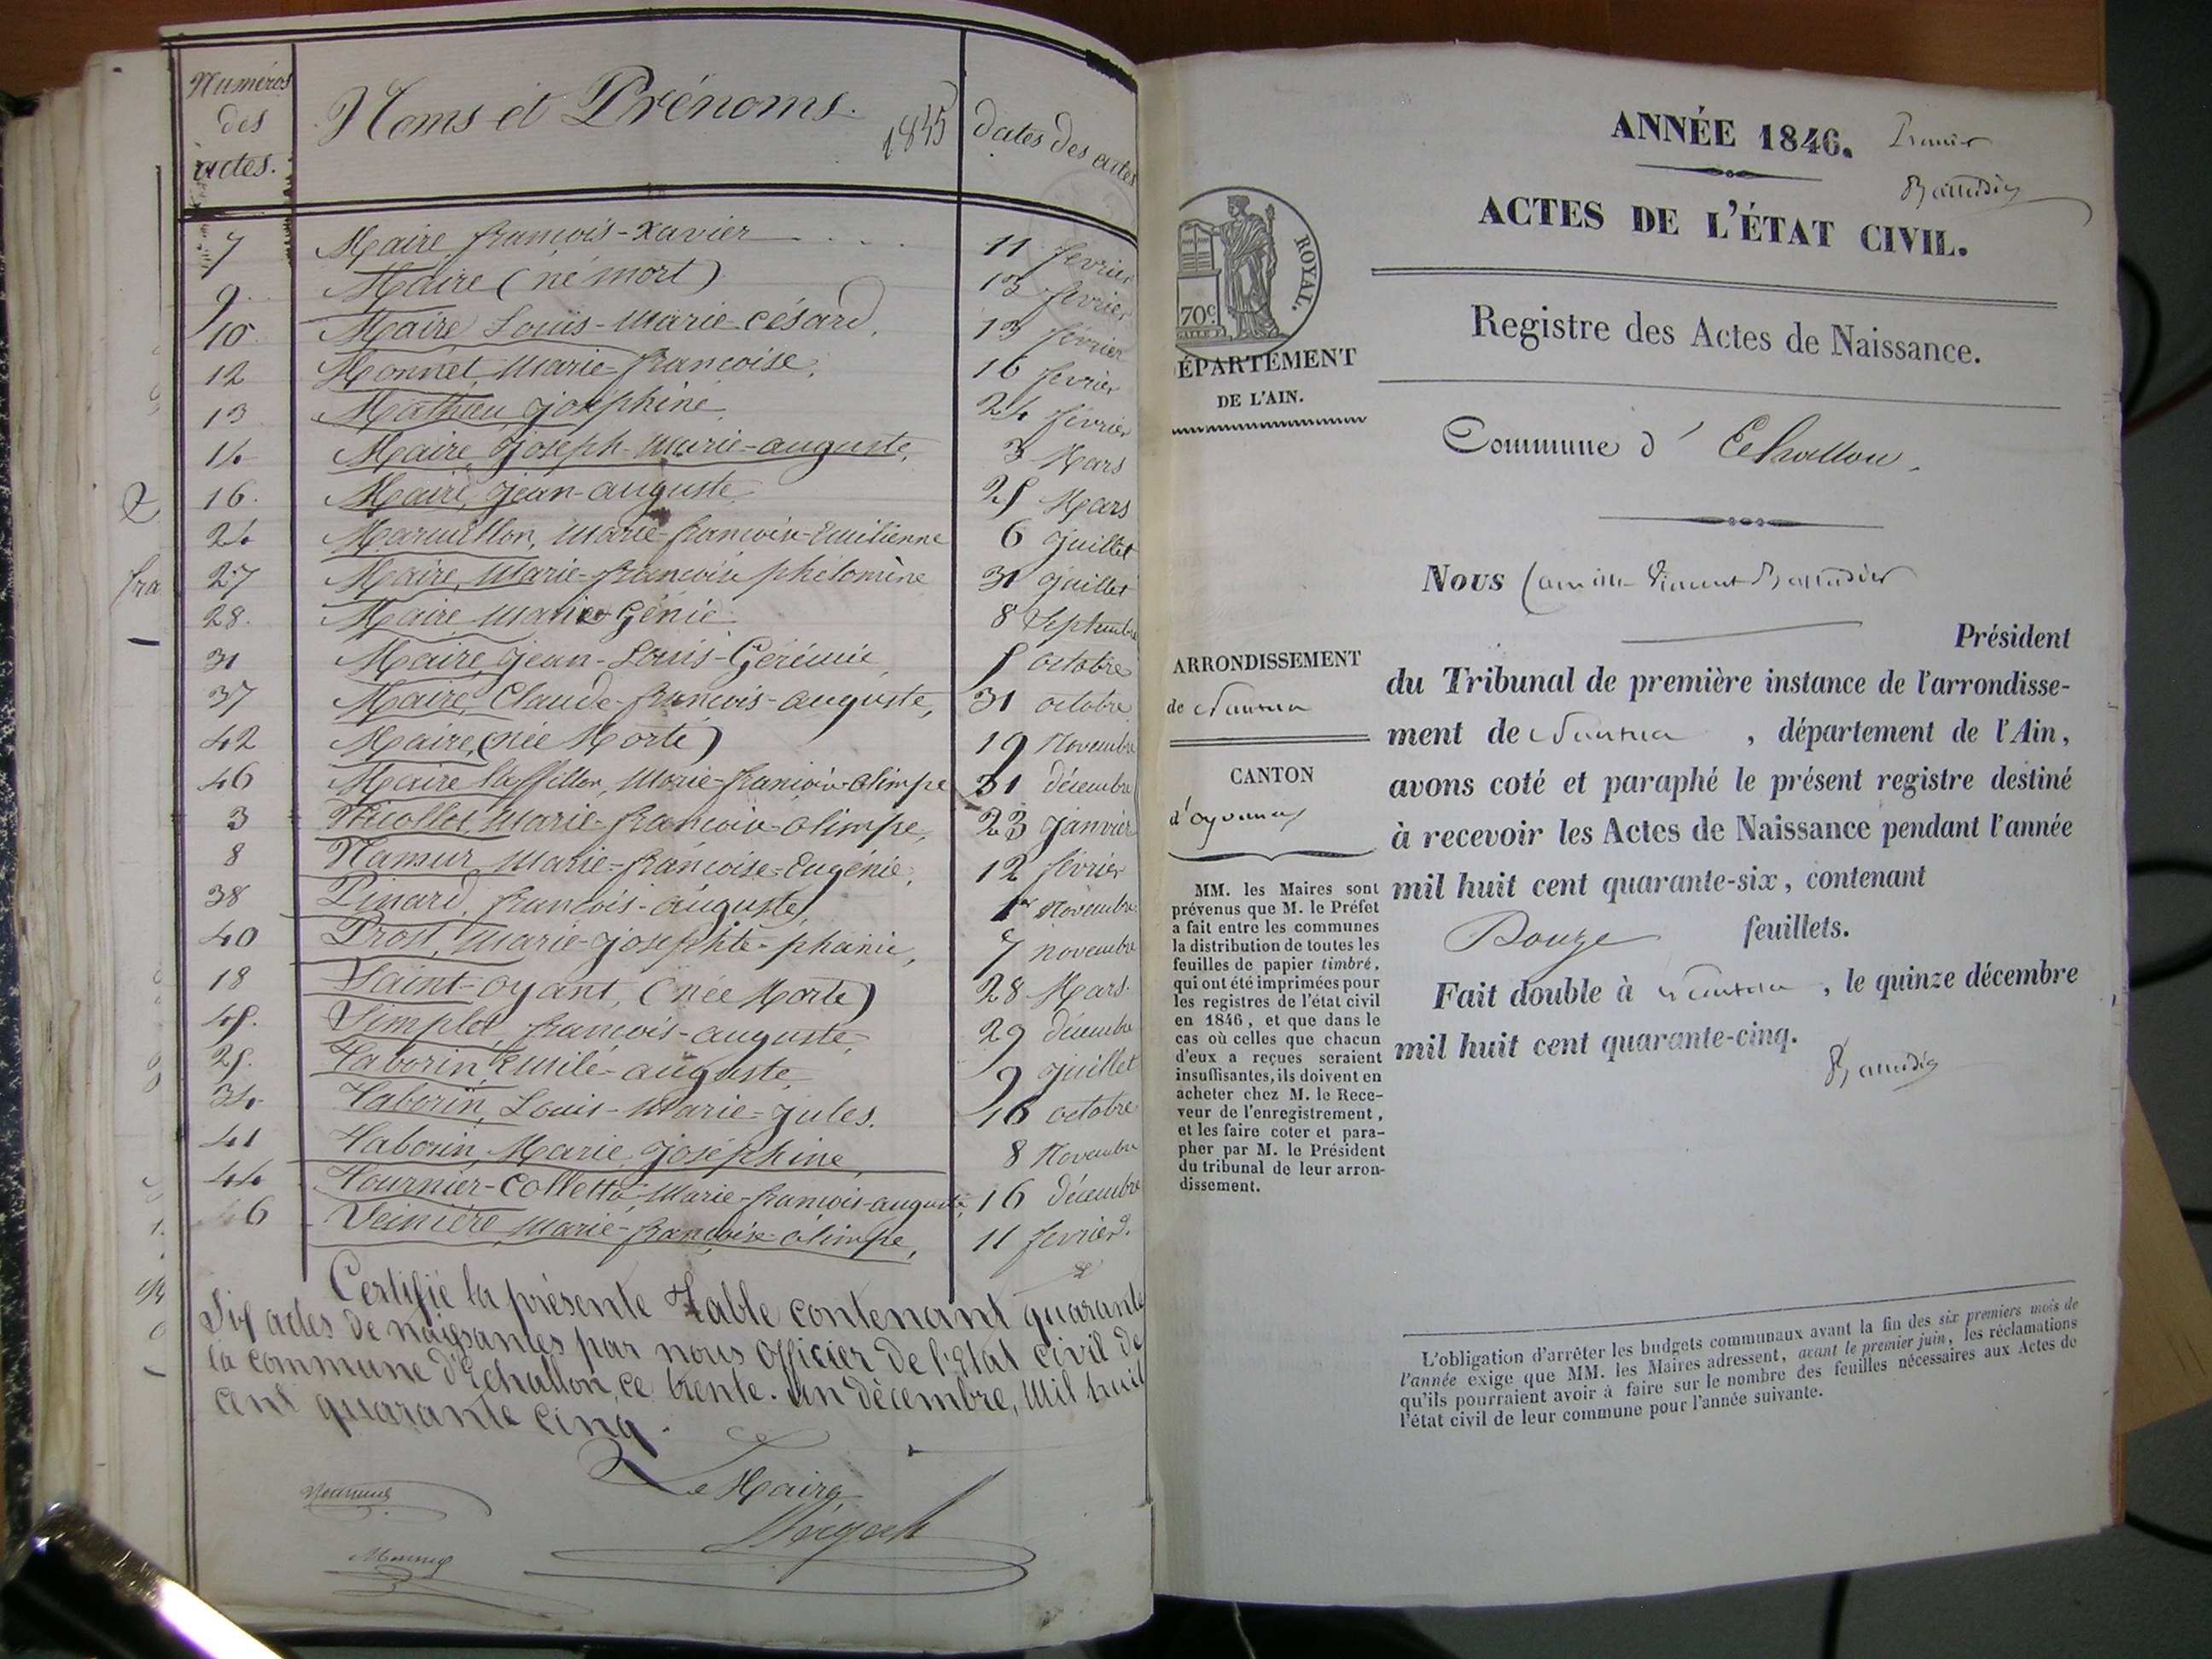 Numéros
des
actes.
Noms et Prénoms.
1845
dates des actes
7 Maire, françois-xavier 11 février
9 Maire (né mort) 13 février
10 Maire, Louis-Marie-césard. 13 février
12 Monnet, Marie-françoise. 16 février
13 Mathieu, joséphine 24 février
14 Maire, joseph-Marie-auguste, 3 Mars
16. Maire, jean-auguste 25 Mars
24 Marie-françoise-Emilienne 6 juillet
27 Maire, Marie-françoise philomène 31 juillet
28. Maire 8 Septembre
31 Maire, jean-Louis-Gérémie, 5 octobre
37 Maire, Claude-françois-auguste, 31 octobre
42 Maire, (née Morte) 19 Novembre
46 Maire Marie-françoise-olimpe 31 décembre
3 Nicollet, Marie-françoise-olimpe, 23 janvier
8 Namur, Marie-françoise-Eugénie, 12 février
38 Pinard, françois-auguste, 1er Novembre
40 Prost, Marie-josephte-phanie, 7 novembre
18 Saint-oyant, (née Morte) 28 Mars
45. Simplet, françois-auguste, 29 décembre
25. Taborin Emile-auguste, 9 juillet
34. Taborin, Louis-Marie-jules. 16 octobre
41 Taborin, Marie joséphine, 8 Novembre
44 Tournier-Colletta, Marie-françois-auguste, 16 décembre
6 Marie-françoise-olimpe, 11 février.
Certifié la présente Table contenant quarante
Six actes de naissances par nous Officier de l'état civil de
la commune d'Echallon, ce trente-un décembre, Mil huit
cent quarante cinq.
Le Maire,
ANNÉE 1846.
Premier
ACTES DE L'ÉTAT CIVIL.
Registre des Actes de Naissance.
ROYAL.
70 c.
ÉPARTEMENT
DE L'AIN.
Commune d' Echallon.
Nous Camille Vincent
Président
du Tribunal de première instance de l'arrondisse-
ment de Nantua , département de l'Ain,
avons coté et paraphé le présent registre destiné
à recevoir les Actes de Naissance pendant l'année
mil huit cent quarante-six, contenant
Douze feuillets.
Fait double à Nantua , le quinze décembre
mil huit cent quarante-cinq.
ARRONDISSEMENT
de Nantua
CANTON
d'oyonnax
MM. les Maires sont
prévenus que M. le Préfet
a fait entre les communes
la distribution de toutes les
feuilles de papier timbré,
qui ont été imprimées pour
les registres de l'état civil
en 1846, et que dans le
cas où celles que chacun
d'eux a reçues seraient
insuffisantes, ils doivent en
acheter chez M. le Rece-
veur de l'enregistrement,
et les faire coter et para-
pher par M. le Président
du tribunal de leur arron-
dissement.
L'obligation d'arrêter les budgets communaux avant la fin des six premiers mois de
l'année exige que MM. les Maires adressent, avant le premier juin, les réclamations
qu'ils pourraient avoir à faire sur le nombre des feuilles nécessaires aux Actes de
l'état civil de leur commune pour l'année suivante.